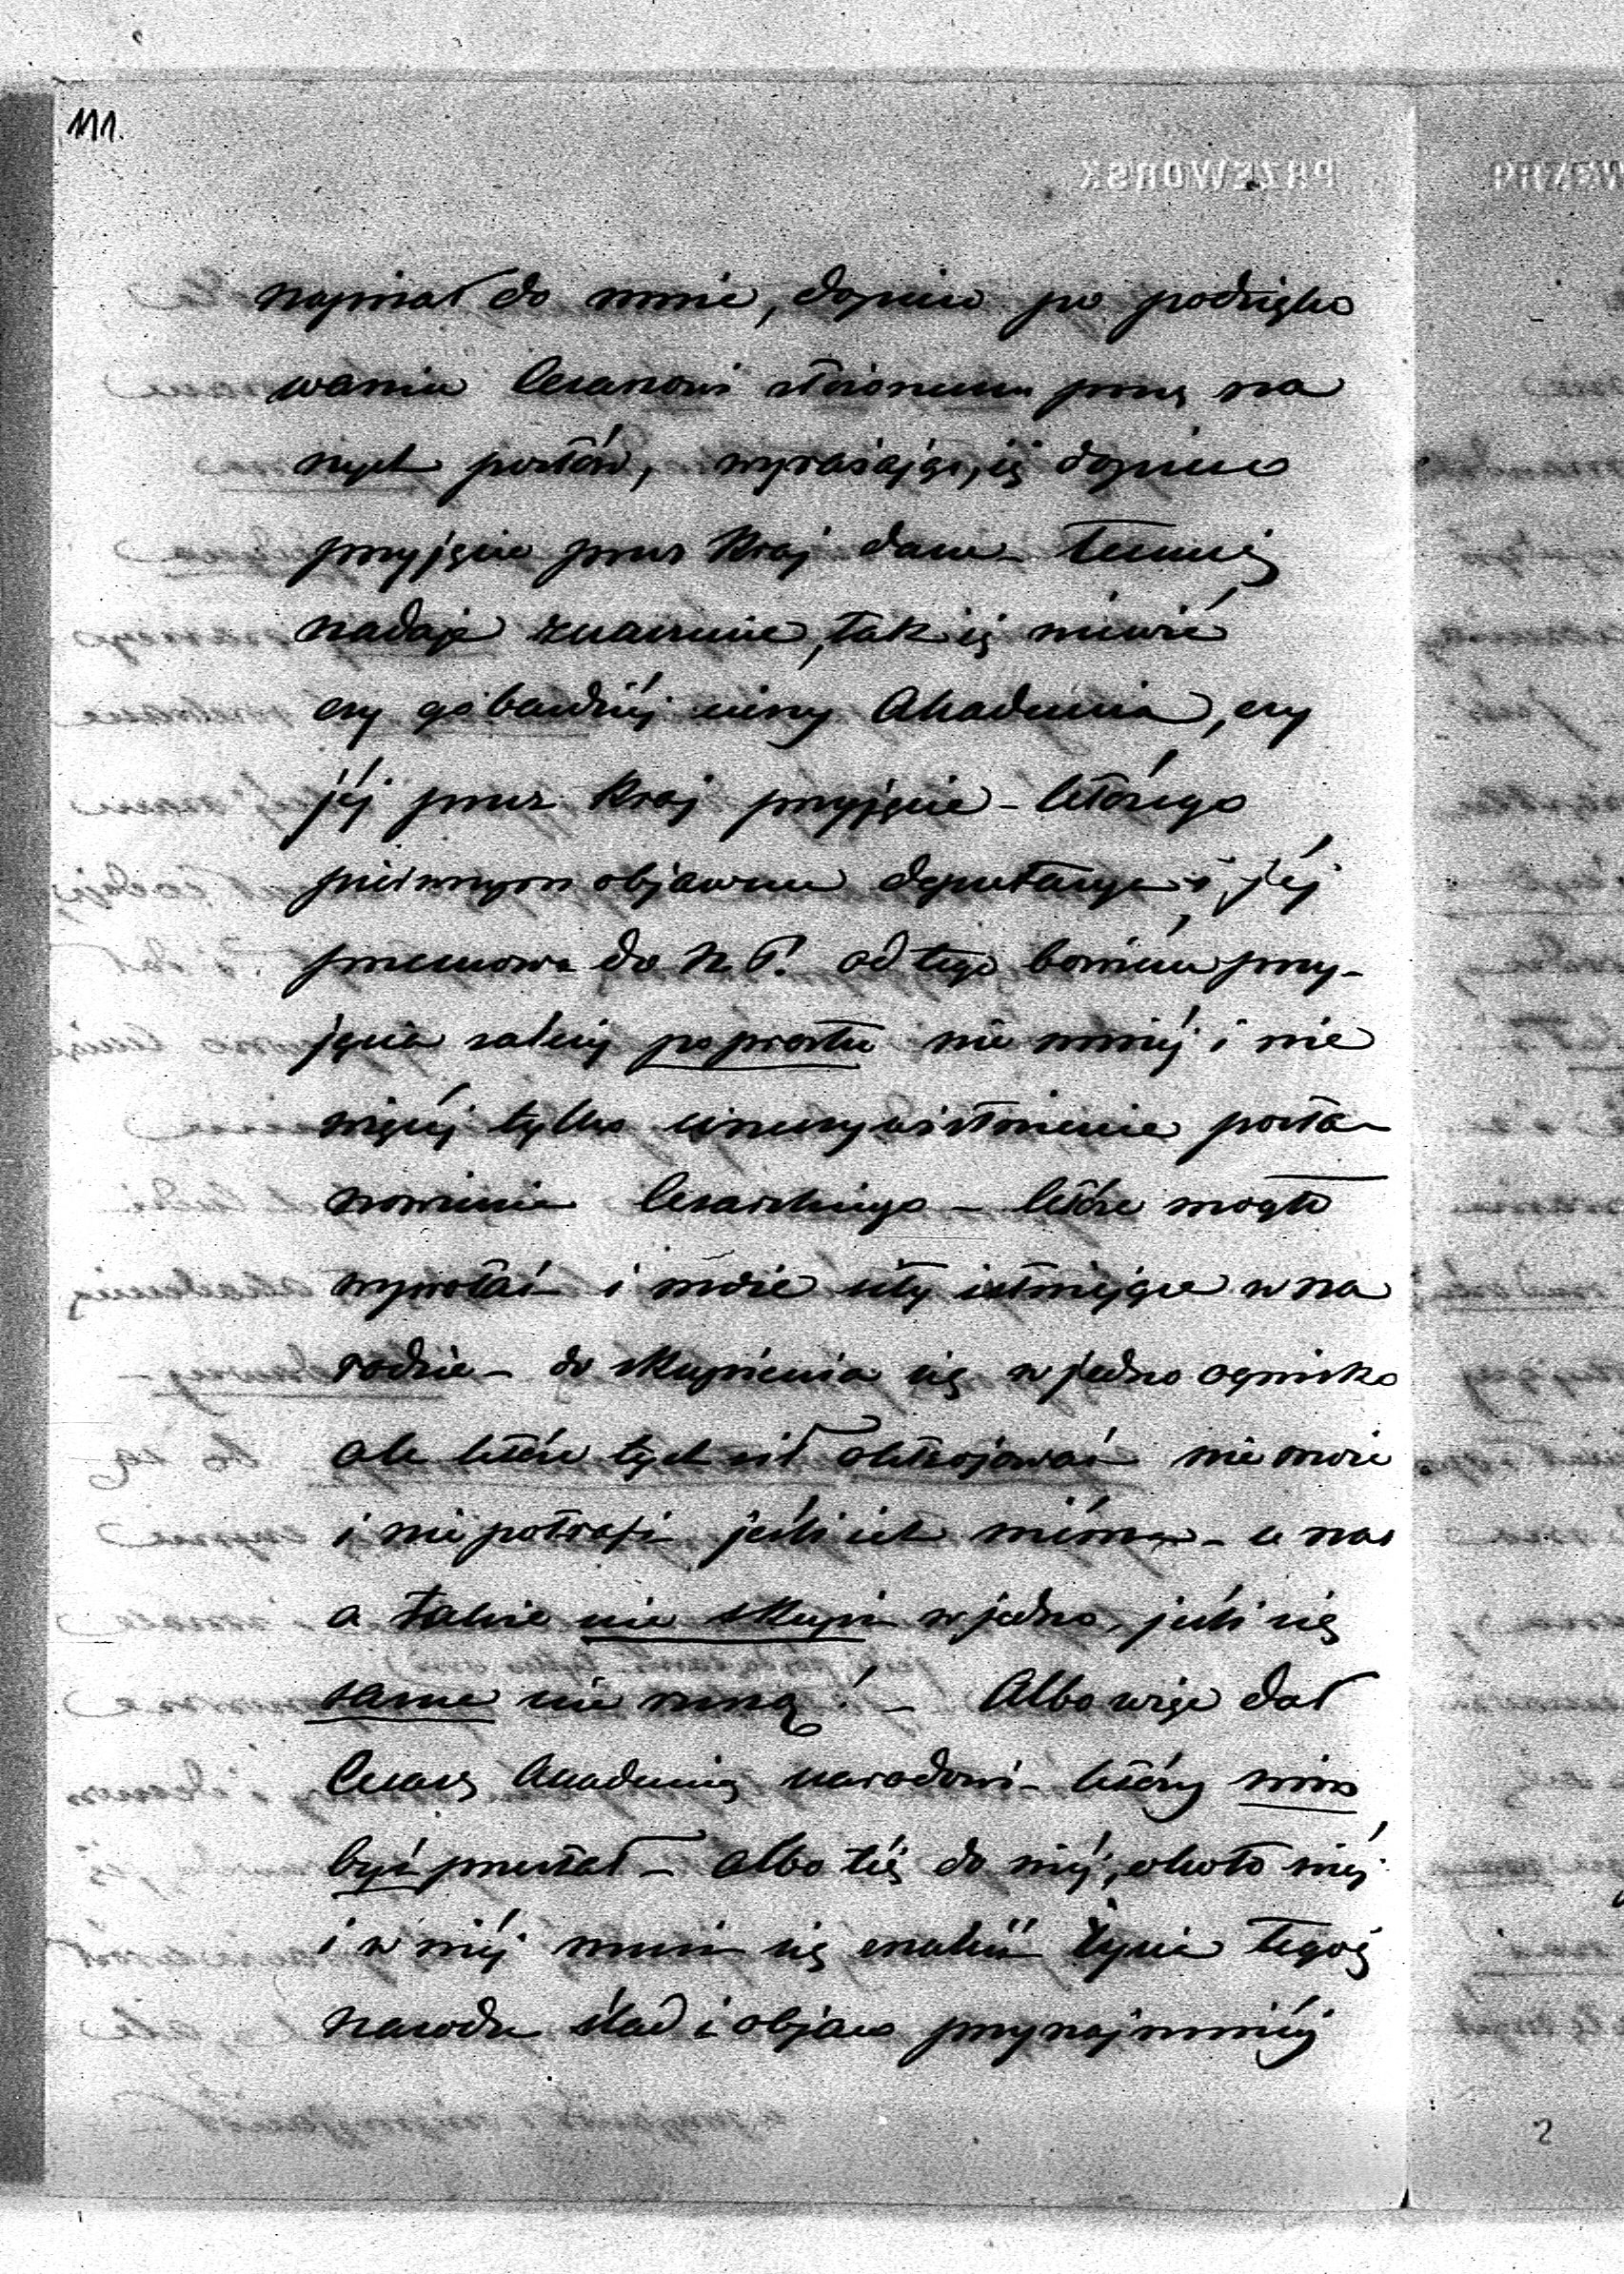 111.
PRZEWORSK
napisał do mnie, dopiero po podzięko
waniu Cesarzowi złożonemu przez na
szych posłów, wyrażając, iż dopiero
przyjęcie przez kraj daru - temuż
nadaje znaczenie, tak iż niewie
czy go bardziéj ceniy Akademia, czy
jéj przez kraj przyjęcie - którego
pierwszym objawem deputacya i jéj
przemowa do N. P. od tego bowiem przy-
jęcia zależy poprostu nie mniéj i nie
więcéj tylko urzeczywistnienie posta-
nowienia Cesarskiego - które mogło
wywołać i może siły istniejące w na
rodzie - do skupienia się w jedno ognisko
ale które tych sił oktrojować nie może
i nie potrafi jeśli ich niéma - u nas
a także nie skupi w jedno, jeśli się
same nie zejdą! - Albo więc dał
Cesarz Akademię narodowi - który nim
być przestał - albo téż do niéj, około niéj
i w niéj musi się znaleźć życia tegoż
narodu ślad i objaw przynajmniéj
2